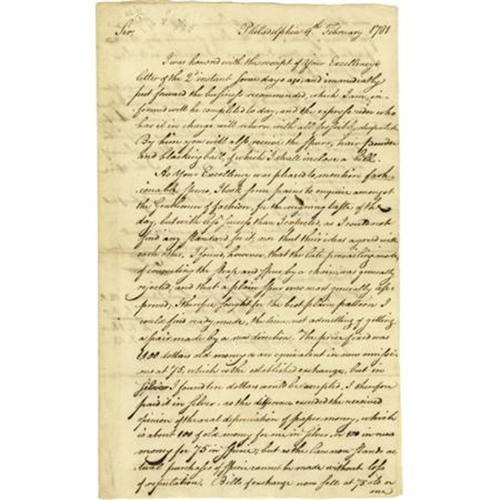 Sir, Philadelphia 9th February 1781
I was honored with the receipt of Your Excellency's
letter of the 2d instant some days ago, and immediately
put forward the business recommended, which I am in-
formed will be completed to day, and the express rider who
has it in charge will return with all possible dispatch
By him you will also receive the Spurs, hair powder
and blacking ball, of which I shall inclose a bill.
As Your Excellency was pleased to mention fash-
ionable Spurs, I took some pains to enquire amongst
the Gentlemen of fashion, for the reigning taste of the
day, but with less success than I expected, as I could not
find any standard for it, nor that their ideas agreed with
each other, I found, however, that the late prevailing mode
of connecting the Strap and Spur by a chain was generally
rejected, and that a plain Spur was most generally ap-
proved; I therefore sought for the best plain pattern I
could find ready made, the time not admitting of getting
a pair made by a new direction. The price was
dollars old money or an equivalent in new emissi-
ons at 75, which is the established exchange, but in
Silver I found ten dollars would be accepted, I therefore
paid it in Silver, as the difference exceeded the received
opinion of the real depreciation of paper money, which
is about 100 of old money for one in Silver, or 100 in new
money for 75 in Specie; but as the law now stands
purchases of Specie cannot be made without loss
of reputation. Bills of exchange now sell at 75 old or
one